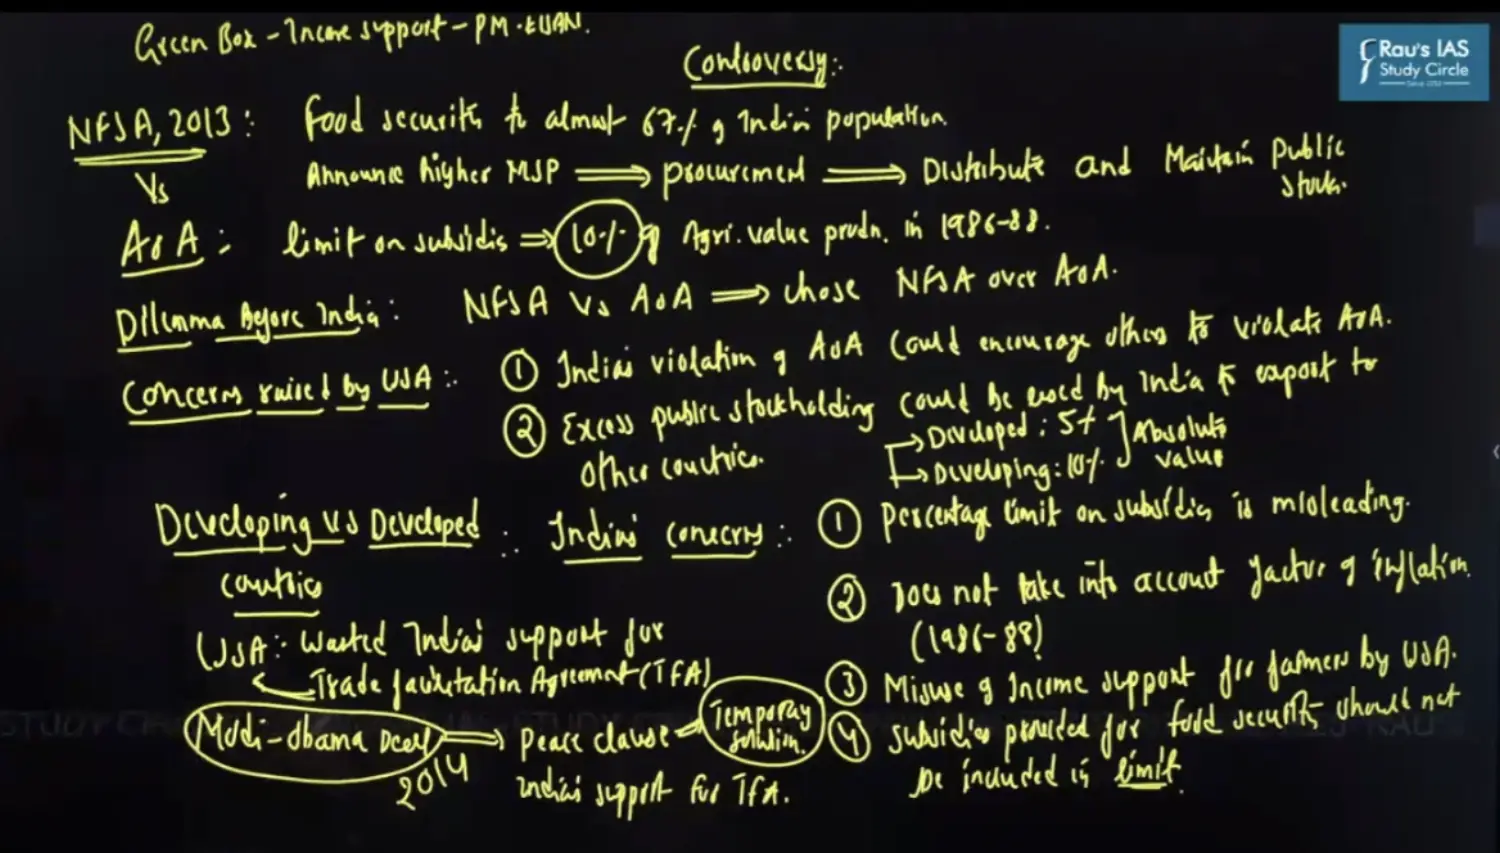 Green Box - Income support - PM-KISAN.
Rau's IAS
Study Circle
Controversy:
NFSA, 2013: Food security to almost 67% of Indian population.
Vs
Announce higher MSP ⟹ procurement ⟹ Distribute and Maintain Public stock.
AoA: limit on subsidies ⟹ 10% of Agri. value prodn. in 1986-88.
Dilemma Before India: NFSA Vs AoA ⟹ chose NFSA over AoA.
Concerns raised by USA: ① India's violation of AoA could encourage others to violate AoA.
② Excess public stockholding could be used by India to export to
other countries.
Developed: 5%
Developing: 10%
Absolute value
Developing vs Developed countries: India's concerns: ① Percentage limit on subsidies is misleading.
② Does not take into account factor of inflation.
(1986-88)
USA: Wanted India's support for
Trade facilitation Agreement (TFA)
③ Misuse of Income support for farmers by USA.
Modi-Obama Deal ⟹ peace clause → Temporary solution.
2014
India's support for TFA.
④ subsidies provided for food security should not
be included in limit.